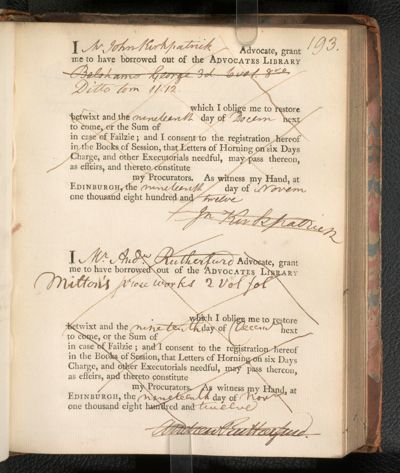 193.
I Mr John Kirkpatrick Advocate, grant
me to have borrowed out of the ADVOCATES LIBRARY
Belshams George 3d 6 vols 8vo
Ditto tom 11.12.
which I oblige me to restore
betwixt and the nineteenth day of Decem next
to come, or the Sum of
in case of Failzie; and I consent to the registration hereof
in the Books of Session, that Letters of Horning on six Days
Charge, and other Executorials needful, may pass thereon,
as effeirs, and thereto constitute
my Procurators. As witness my Hand, at
EDINBURGH, the nineteenth day of Novem
one thousand eight hundred and twelve
Jn Kirkpatrick
I Mr. Andw Rutherfurd Advocate, grant
me to have borrowed out of the ADVOCATES LIBRARY
Milton's prose works 2 vol fol
which I oblige me to restore
betwixt and the nineteenth day of Decemr next
to come, or the Sum of
in case of Failzie; and I consent to the registration hereof
in the Books of Session, that Letters of Horning on six Days
Charge, and other Executorials needful, may pass thereon,
as effeirs, and thereto constitute
my Procurators. As witness my Hand, at
EDINBURGH, the nineteenth day of Novr
one thousand eight hundred and twelve
Andrew Rutherfurd.